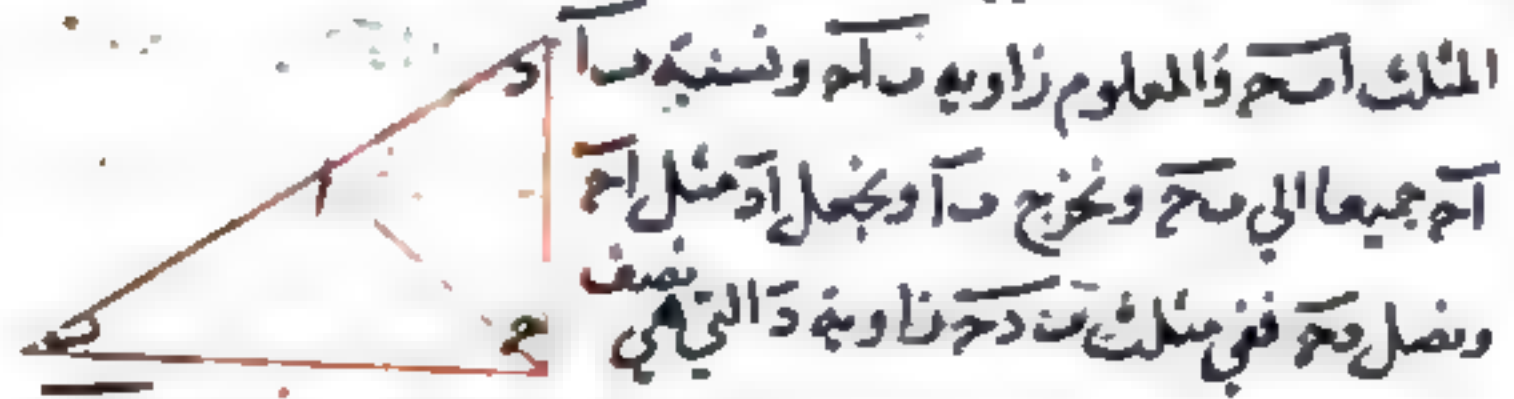 المثلث ا ب ح والمعلوم زاويه ب ا ح ونسبة ب ا
ا ح جميعا الي ب ح ونخرج ب ا ونجعل ا د مثل ا ح
ونصل د ح ففي مثلث ب د ح زاوية د التي هي نصف
د
ا
ب
ح